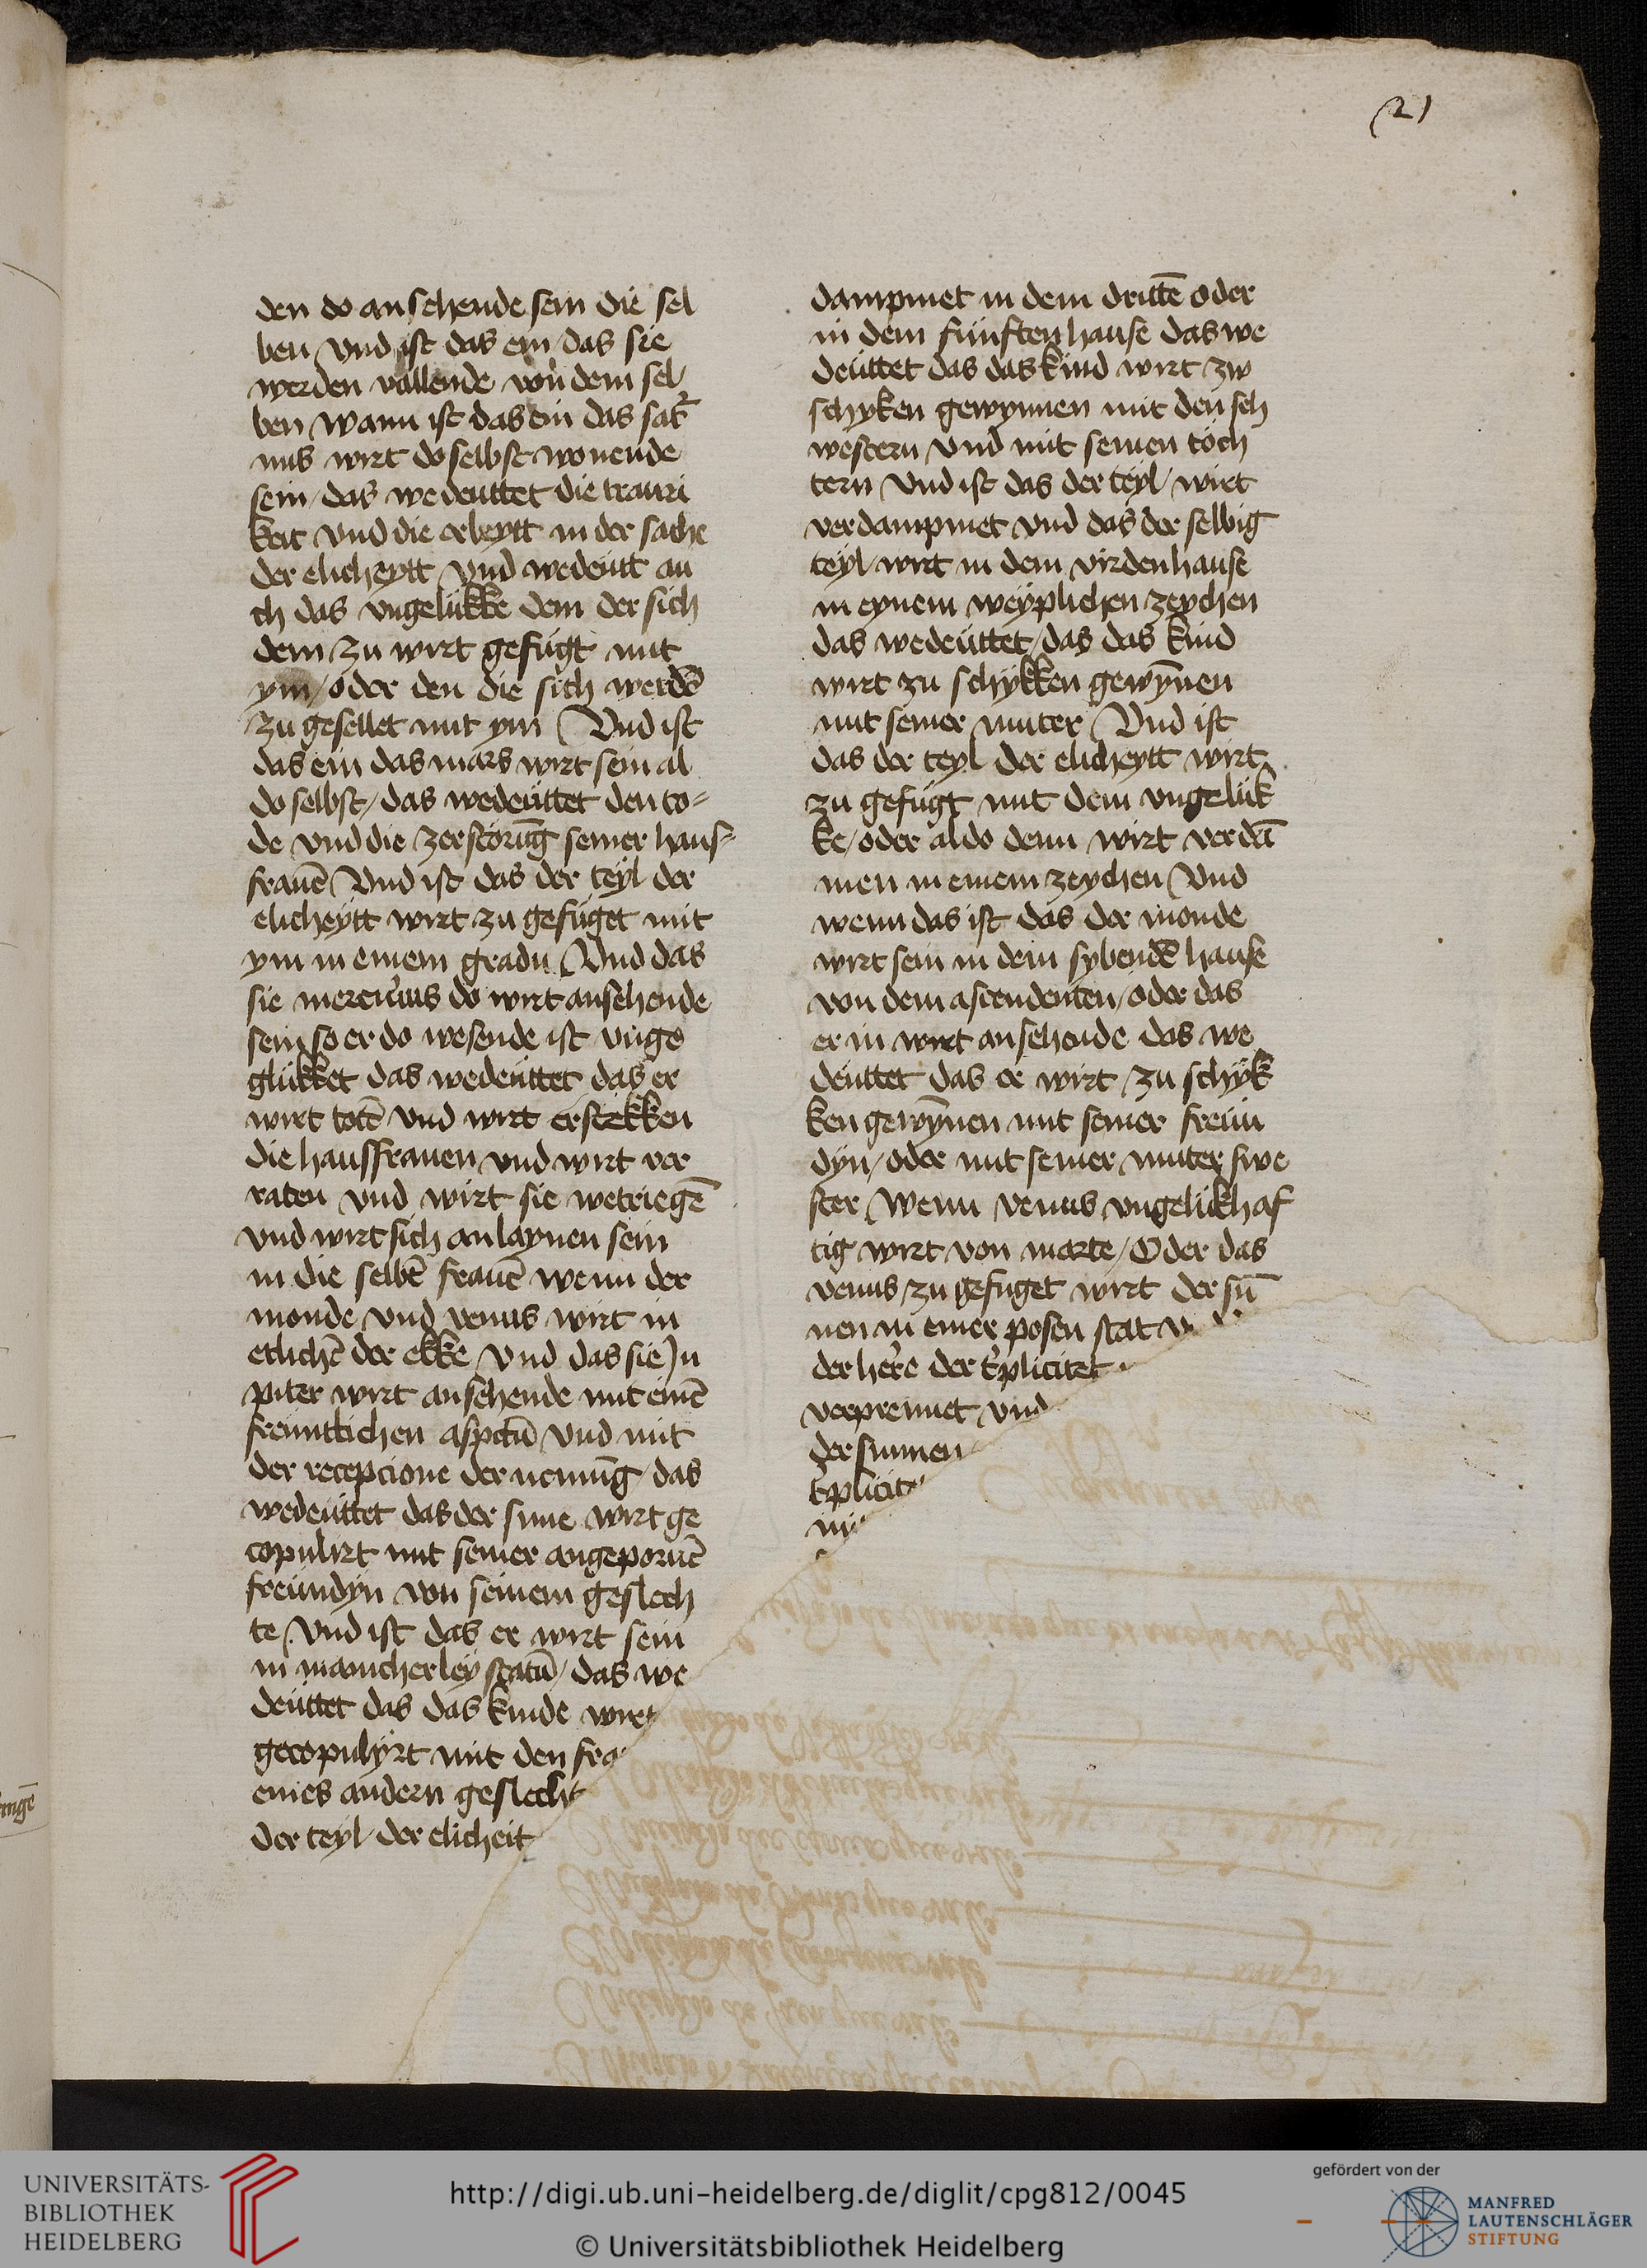 21
den do ansehende sein die sel
ben Vnd ist das ein das sie
werden vallende von dem sel
ben Wann ist das ein das sat͛
nus wirt do selbst wonende
sein / das wedeuttet die trauri
keit vnd die erbeytt in der sache
der elicheytt Vnd wedeutt au
ch das vngelükke dem der sich
dem zu wirt gefügt mit
ym / oder den die sich werdē
zu gesellet mit ym Vnd ist
das ein das mars wirt sein al
do selbst / das wedeüttet den to=
de vnd die zerstörūg seiner haus=
frauē Vnd ist das der teyl der
elicheytt wirt zu gefüget mit
ym in einem gradu Vnd das
sie mercurius do wirt ansehende
sein so er do wesende ist vnge
glükket das wedeüttet das er
wirt totē vnd wirt erstekken
die hausfrauen vnd wirt ver
raten vnd wirt sie wetriegē
vnd wirt sich anlaynen sein
in die selbē frauē wenn der
monde vnd venus wirt in
etlichē der ekke Vnd das sie Ju
piter wirt ansehende mit einē
freüntlichen aspectū vnd mit
der recepcione der nemūg / das
wedeüttet das der sune wirt ge
copulirt mit seiner angepornē
freündyn von seinem geslech
te / Vnd ist das er wirt sein
in mancherley statū / das we
deüttet das das kinde wirt
gecopulyrt mit den fra
eines andern geslecht
der teyl der elicheit
dampmet in dem drittē oder
in dem fünften hause das we
deüttet das das kind wirt zw
schyken gewynnen mit den sch
western vnd mit seinen töch
tern Vnd ist das der teyl / wirt
verdampmet vnd das der selbig
teyl / wirt in dem virden hause
in eynem weyplichen zeychen
das wedeüttet / das das kind
wirt zu schykken gewȳnen
mit seiner muter Vnd ist
das der teyl der elicheytt wirt
zu gefügt mit dem vngelük
ke / oder aldo denn wirt verdā
men in einem zeychen Vnd
wenn das ist das der monde
wirt sein in dem sybendē hause
von dem ascendenten / oder das
er in wirt ansehende das we
deüttet das er wirt / zu schyk
ken gewȳnen mit seiner freün
dyn / oder mit seiner muter swe
ster Wenn venus vngelükhaf
tig wirt von marte / Oder das
venus / zu gefüget wirt der sū
nen in einer posen stat
der here der t͛plicitet
verprennet vnd
der sunnen
t͛plicite
http://digi.ub.uni-heidelberg.de/diglit/cpg812/0045
© Universitätsbibliothek Heidelberg
UNIVERSITÄTS-
BIBLIOTHEK
HEIDELBERG
gefördert von der
MANFRED
LAUTENSCHLÄGER
STIFTUNG